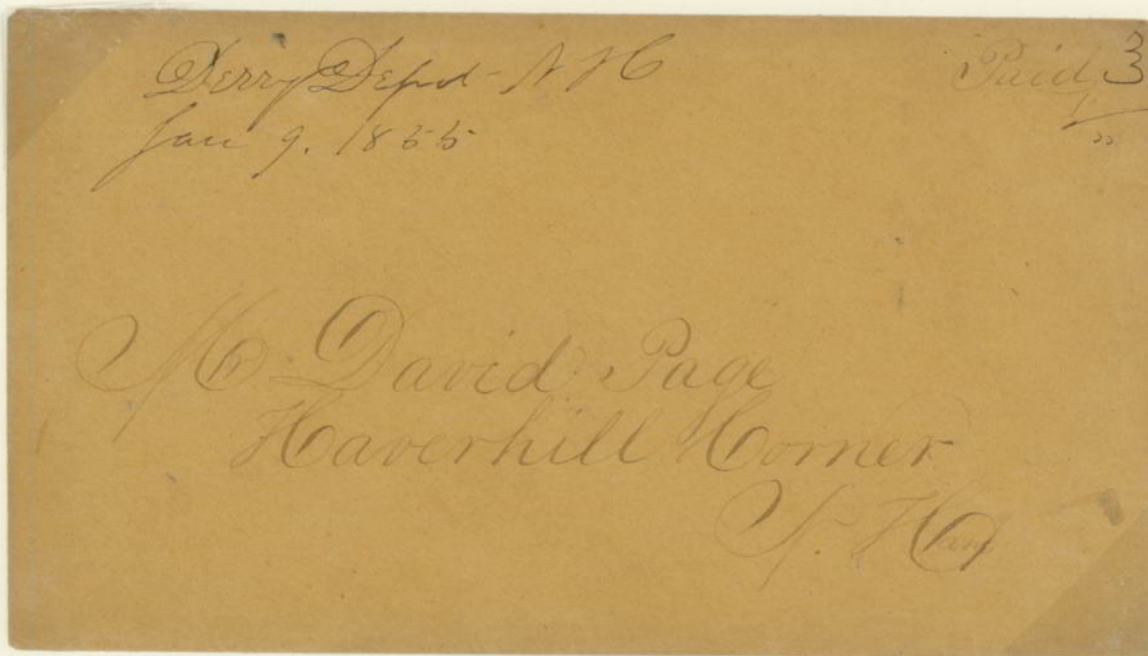 Derry Depot N H
Jan 9. 1855
Paid 3
Mr David Page
Haverhill Corner
N. Hamp